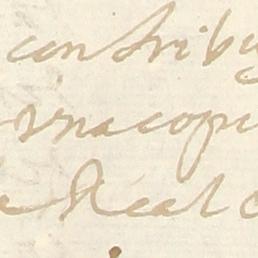 contribu
rnacopi
Real C